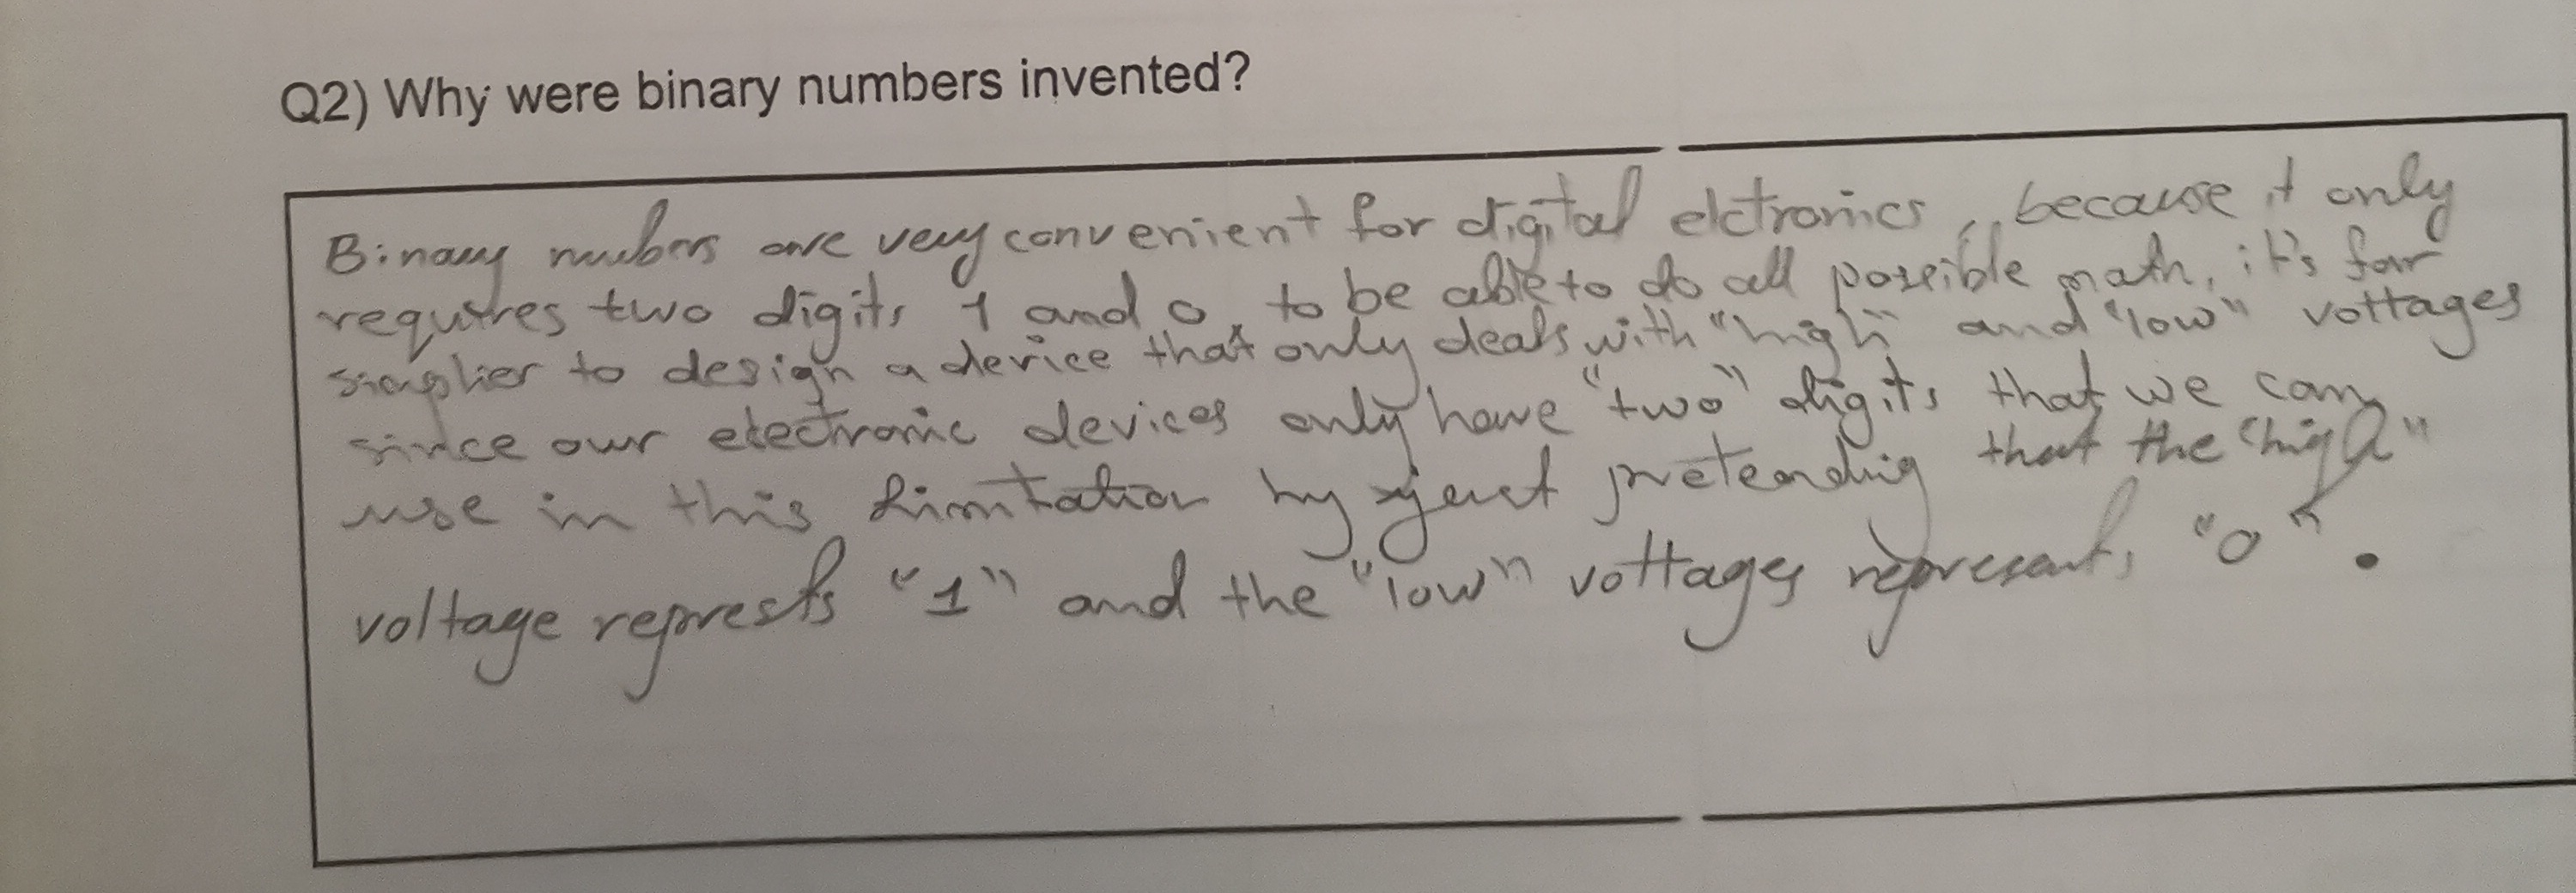 Q2) Why were binary numbers invented?
Binary nubers are very convenient for digital elctronics, because it only
requires two digits 1 and 0, to be able to do all possible math, it's far
simplier to design a device that only deals with "high" and "low" voltages
since our electronic devices only have "two" digits that we can
use in this limitation by just pretending that the "high"
voltage represts "1" and the "low" voltages represents "0".